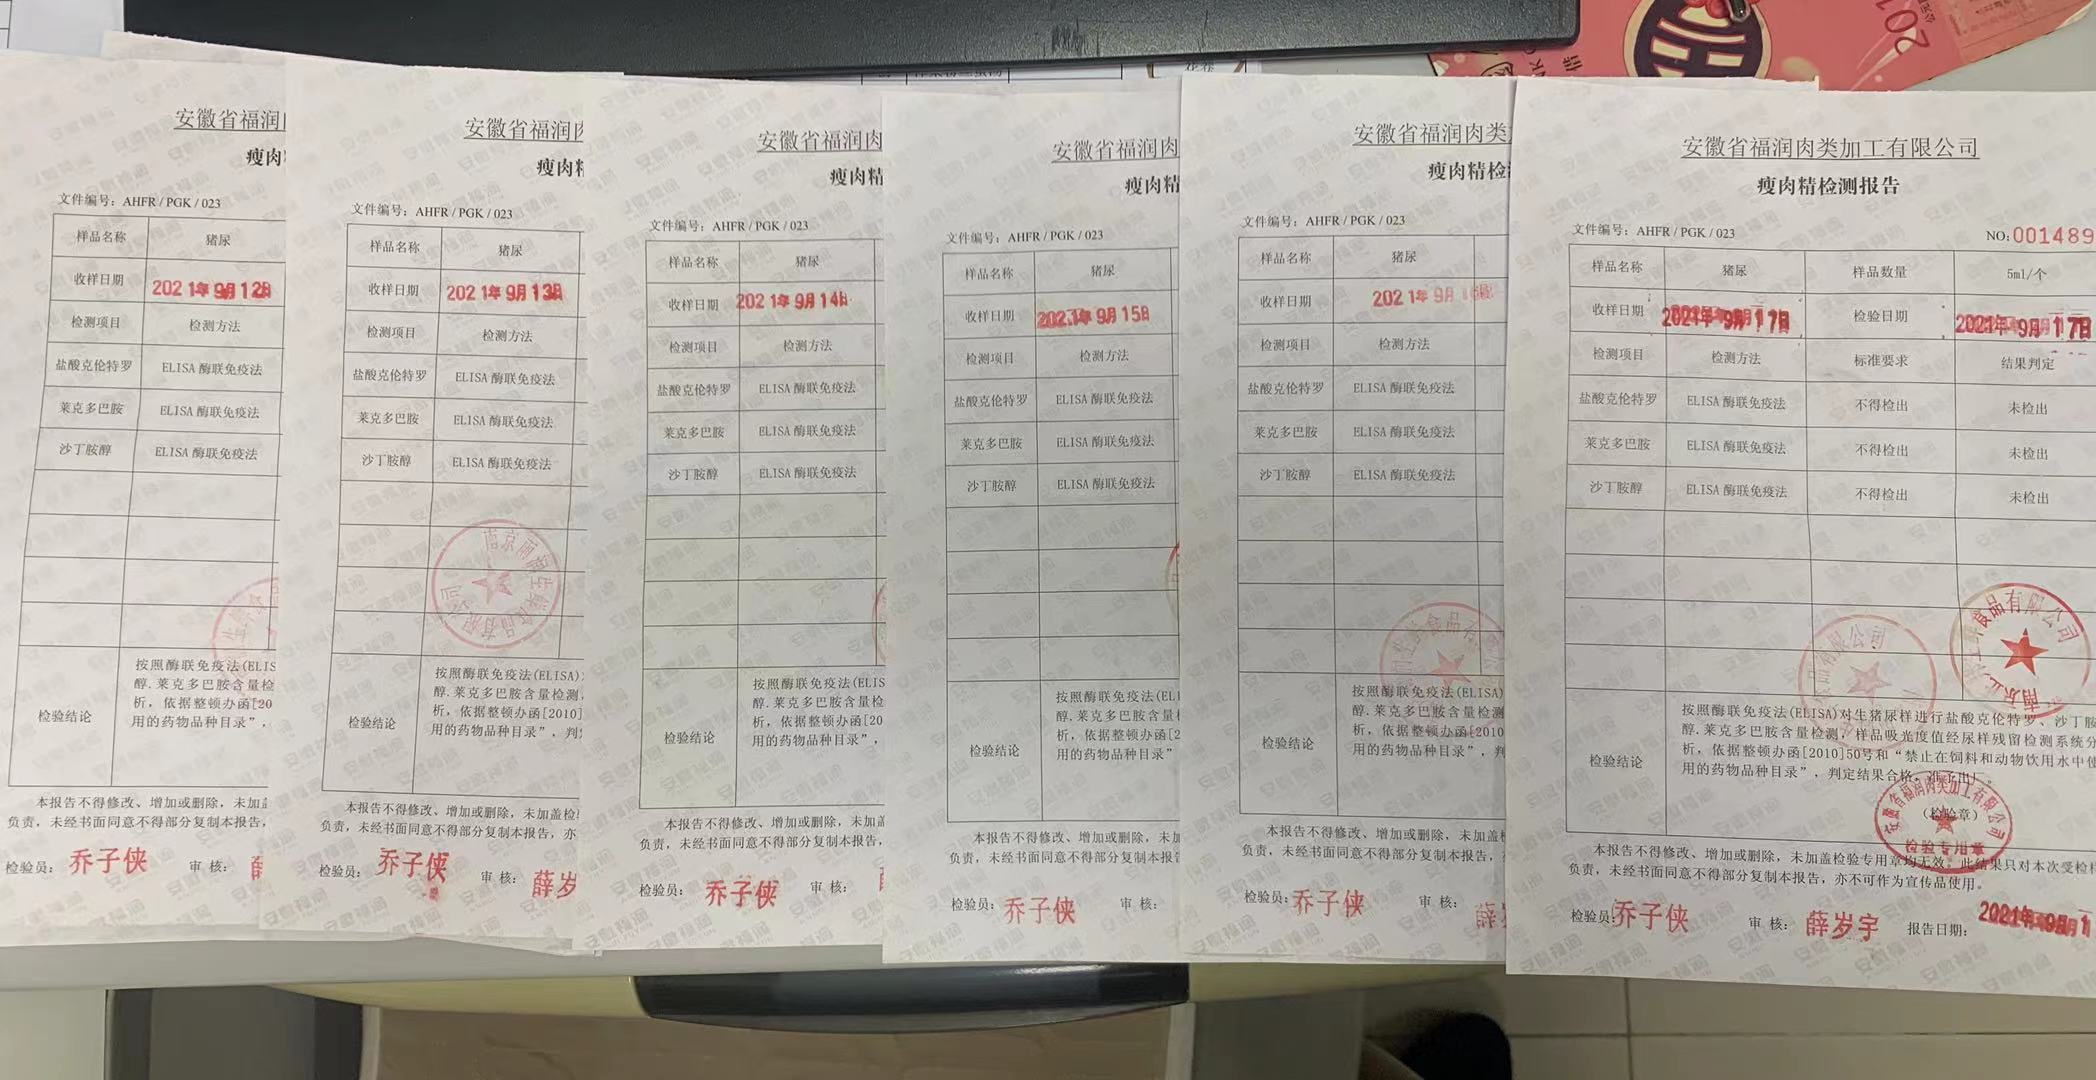 安徽省福润
瘦肉
文件编号：AHFR / PGK / 023
样品名称 猪尿
收样日期 2021年9月12日
检测项目 检测方法
盐酸克伦特罗 ELISA 酶联免疫法
莱克多巴胺 ELISA 酶联免疫法
沙丁胺醇 ELISA 酶联免疫法
检验结论
按照酶联免疫法(ELIS
醇.莱克多巴胺含量检
析，依据整顿办函[20
用的药物品种目录”，
本报告不得修改、增加或删除，未加盖
负责，未经书面同意不得部分复制本报告，
检验员：乔子侠 审 核：
安徽省福润
瘦肉
文件编号：AHFR / PGK / 023
样品名称 猪尿
收样日期 2021年9月13日
检测项目 检测方法
盐酸克伦特罗 ELISA 酶联免疫法
莱克多巴胺 ELISA 酶联免疫法
沙丁胺醇 ELISA 酶联免疫法
检验结论
按照酶联免疫法(ELISA)
醇.莱克多巴胺含量检测
析，依据整顿办函[2010]
用的药物品种目录”，判
本报告不得修改、增加或删除，未加盖检
负责，未经书面同意不得部分复制本报告，亦
检验员：乔子侠 审 核：薛岁
安徽省福润肉
瘦肉精
文件编号：AHFR / PGK / 023
样品名称 猪尿
收样日期 2021年9月14日
检测项目 检测方法
盐酸克伦特罗 ELISA 酶联免疫法
莱克多巴胺 ELISA 酶联免疫法
沙丁胺醇 ELISA 酶联免疫法
检验结论
按照酶联免疫法(ELIS
醇.莱克多巴胺含量检
析，依据整顿办函[20
用的药物品种目录”，
本报告不得修改、增加或删除，未加盖
负责，未经书面同意不得部分复制本报告，
检验员：乔子侠 审 核：
安徽省福润肉
瘦肉精
文件编号：AHFR / PGK / 023
样品名称 猪尿
收样日期 2021年9月15日
检测项目 检测方法
盐酸克伦特罗 ELISA 酶联免疫法
莱克多巴胺 ELISA 酶联免疫法
沙丁胺醇 ELISA 酶联免疫法
检验结论
按照酶联免疫法(ELI
醇.莱克多巴胺含量
析，依据整顿办函[2
用的药物品种目录”，
本报告不得修改、增加或删除，未加
负责，未经书面同意不得部分复制本报告
检验员：乔子侠 审 核：
安徽省福润肉类
瘦肉精检
文件编号：AHFR / PGK / 023
样品名称 猪尿
收样日期 2021年9月
检测项目 检测方法
盐酸克伦特罗 ELISA 酶联免疫法
莱克多巴胺 ELISA 酶联免疫法
沙丁胺醇 ELISA 酶联免疫法
检验结论
按照酶联免疫法(ELISA)
醇.莱克多巴胺含量检测
析，依据整顿办函[2010]
用的药物品种目录”，判
本报告不得修改、增加或删除，未加盖检
负责，未经书面同意不得部分复制本报告，
检验员：乔子侠 审 核：薛
安徽省福润肉类加工有限公司
瘦肉精检测报告
文件编号：AHFR / PGK / 023 NO:001489
样品名称 猪尿 样品数量 5ml/个
收样日期 2021年9月17日 检验日期 2021年9月17日
检测项目 检测方法 标准要求 结果判定
盐酸克伦特罗 ELISA 酶联免疫法 不得检出 未检出
莱克多巴胺 ELISA 酶联免疫法 不得检出 未检出
沙丁胺醇 ELISA 酶联免疫法 不得检出 未检出
食品有限公司
检验结论
按照酶联免疫法(ELISA)对生猪尿样进行盐酸克伦特罗、沙丁胺
醇.莱克多巴胺含量检测，样品吸光度值经尿样残留检测系统分
析，依据整顿办函[2010]50号和“禁止在饲料和动物饮用水中使
用的药物品种目录”，判定结果合格，准予出厂。
(检验章)
安徽省福润肉类加工有限公司
检验专用章
本报告不得修改、增加或删除，未加盖检验专用章均无效。此结果只对本次受检样
负责，未经书面同意不得部分复制本报告，亦不可作为宣传品使用。
检验员：乔子侠 审 核：薛岁宇 报告日期：2021年9月1